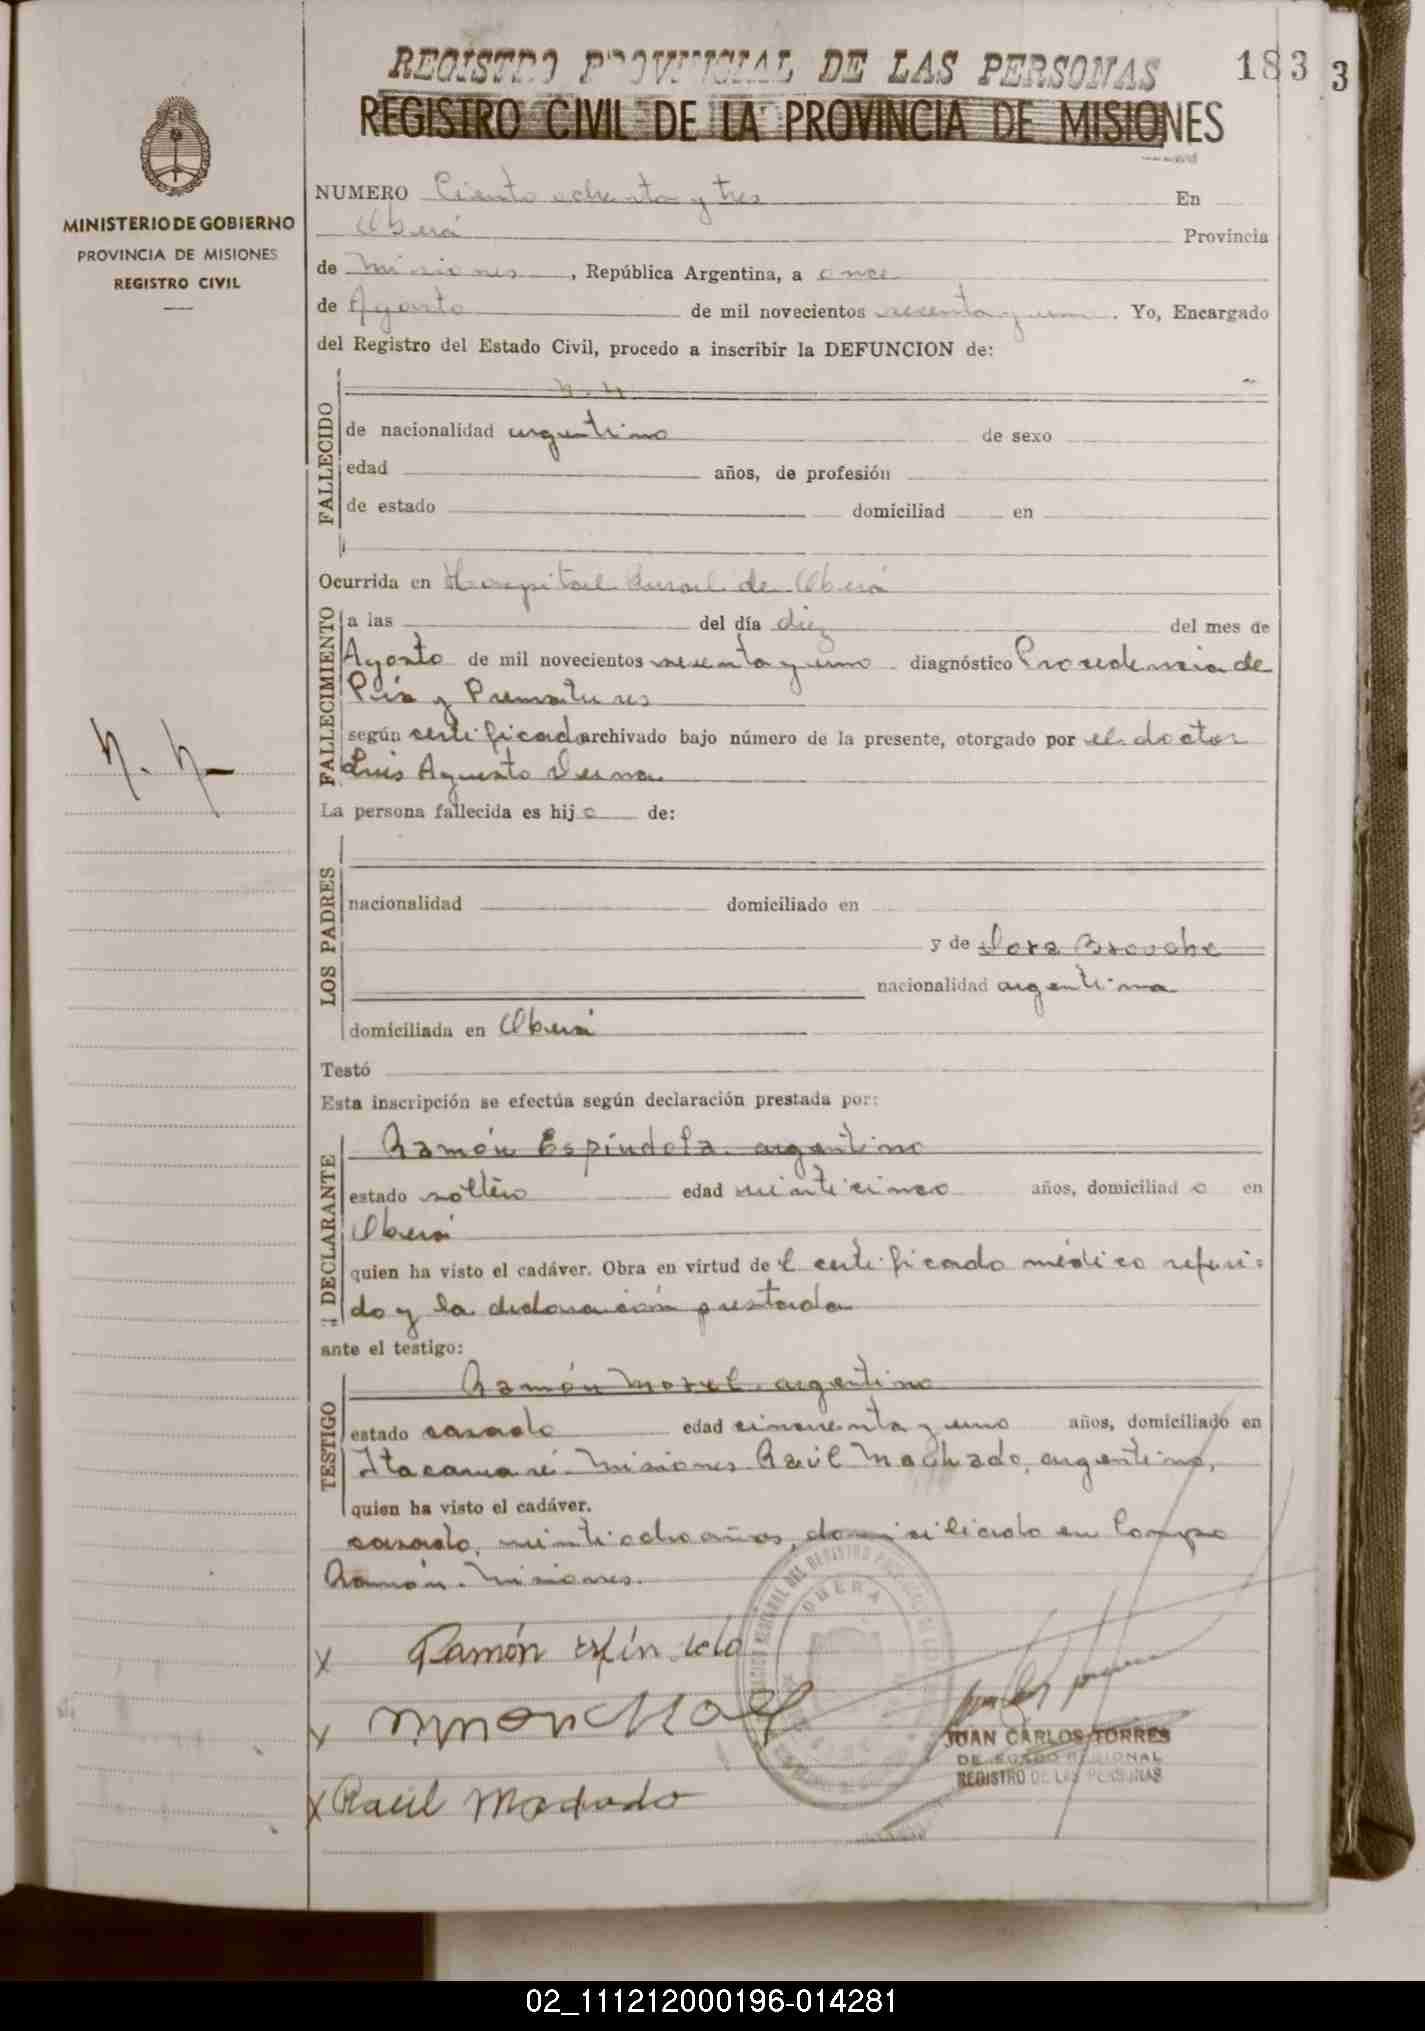 REGISTRO PROVINCIAL DE LAS PERSONAS
183 3
REGISTRO CIVIL DE LA PROVINCIA DE MISIONES
MINISTERIO DE GOBIERNO
PROVINCIA DE MISIONES
REGISTRO CIVIL
NUMERO Ciento ochenta y tres En
Oberá Provincia
de Misiones, República Argentina, a once
de Agosto de mil novecientos sesenta y uno. Yo, Encargado
del Registro del Estado Civil, procedo a inscribir la DEFUNCION de:
N. N.
FALLECIDO
de nacionalidad argentino de sexo
edad años, de profesión
de estado domiciliad en
Ocurrida en Hospital Rural de Oberá
FALLECIMIENTO
a las del día diez del mes de
Agosto de mil novecientos sesenta y uno diagnóstico de
y
según certificad archivado bajo número de la presente, otorgado por el doctor
Luis Agusto
N. N-
La persona fallecida es hij o de:
LOS PADRES
nacionalidad domiciliado en
y de
nacionalidad argentina
domiciliada en Oberá
Testó
Esta inscripción se efectúa según declaración prestada por:
DECLARANTE
Ramón Espíndola. argentino
estado soltero edad veinticinco años, domiciliad o en
Oberá
quien ha visto el cadáver. Obra en virtud de l certificado médico referi-
do y la declaración prestada
ante el testigo:
TESTIGO
Ramón Morel. argentino
estado casado edad cincuenta y uno años, domiciliado en
Itacaruaré. Misiones Raúl Machado, argentino,
quien ha visto el cadáver.
casado, veintiocho años, domiciliado en Campo
Ramón. Misiones.
OBERA
X Ramón Espíndola
X
X Raúl Machado
JUAN CARLOS TORRES
REGIONAL
REGISTRO DE LAS PERSONAS
02_111212000196-014281